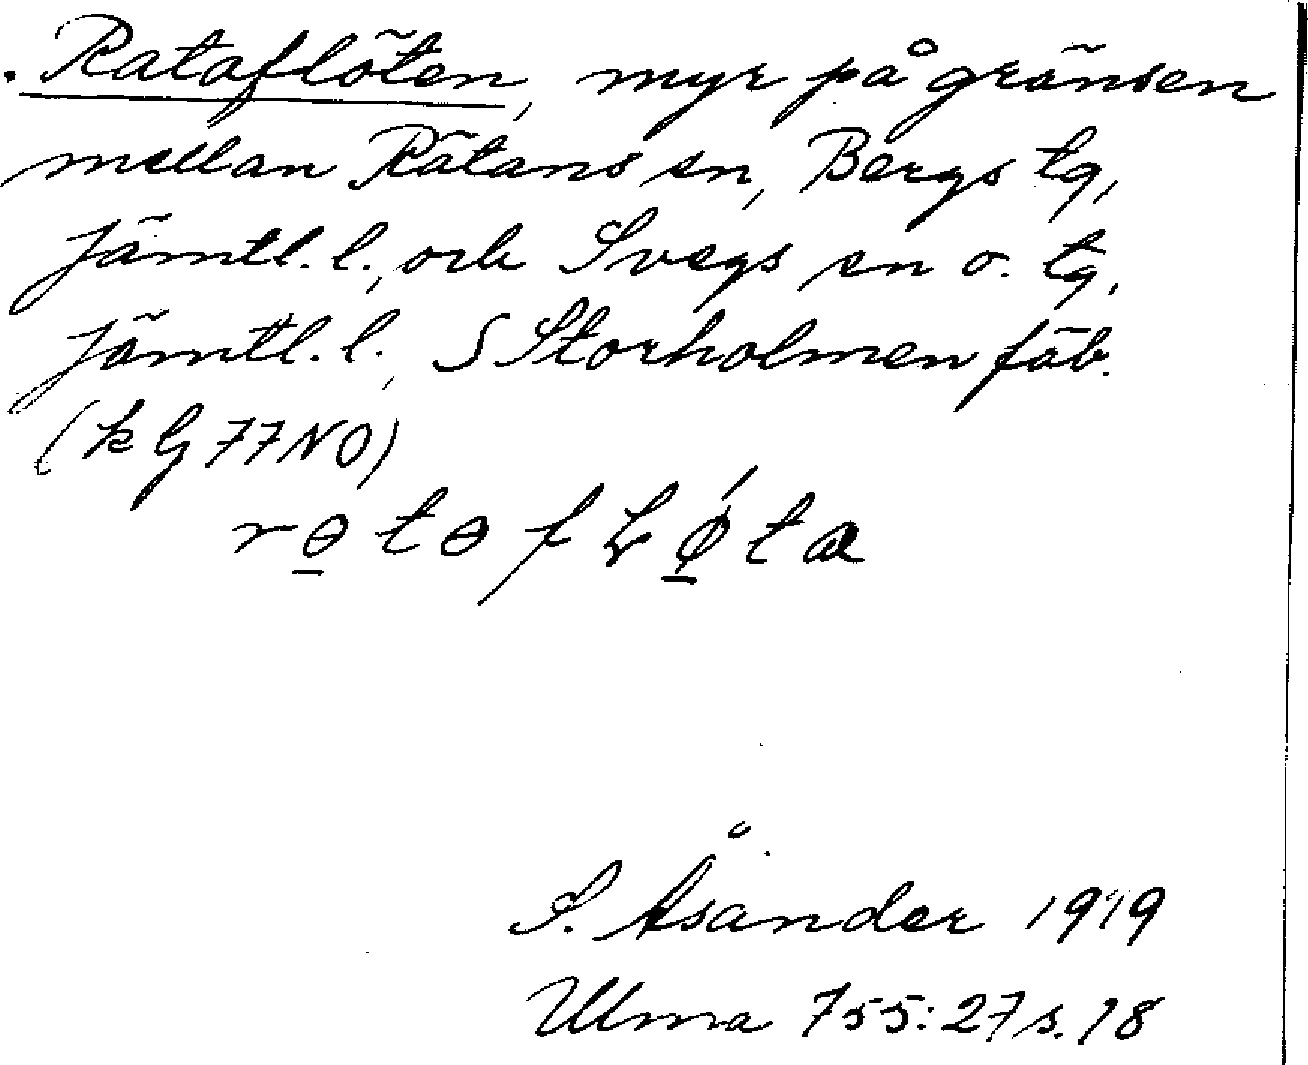 Rataflöten, myr på gränsen
mellan Rätans sn, Bergs tg,
Jämtl. l., och Svegs sn o. tg,
Jämtl. l., S Storholmen fäb.
(k G 77 NO)
S. Åsander 1919
Ulma 755:27 s. 18